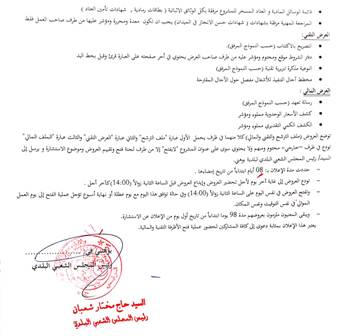 قائمة الوسائل المادية و العتاد المسخر للمشاريع مرفقة بكل الوثائق الاثباتية ( بطاقات رمادية , شهادات تأمين العتاد )
المراجع المهنية مرفقة بشهادات ( شهادات حسن الانجاز في الميدان) يجب ان تكون ممدة ومحررة ومؤشر عليها من طرف صاحب العمل فقط
العرض التقني:
تصريح بالاكتتاب (حسب النموذج المرفق)
دفتر الشروط موقع ومختوم ومؤشر عليه من طرف صاحب العرض يحتوي في آخر صفحته على العبارة قرئ وقبل بخط اليد
الموضوعية مذكرة تبريرية تقنية (حسب النموذج المرفق)
مخطط آجال التنفيذ للأشغال مفصل حول الآجال المقترحة
العرض المالي :
رسالة تعهد (حسب النموذج المرفق)
كشف الأسعار الوحدوية مملوء ومؤشر
الكشف الكمي التقديري مملوء ومؤشر
توضع العروض (ملف الترشح والتقني والمالي) كلا منهما في ظرف يحمل الأول عبارة "ملف الترشح" والثاني عبارة "العرض التقني" والثالث عبارة "الملف المالي"
في ظرف «خارجي» مختوم ومبهم ولا يحتوي سوى على عنوان المشروع "لايفتح" إلا من طرف لجنة فتح وتقييم العروض وموضوع الاستشارة و يرسل إلى
السيد/ رئيس المجلس الشعبي البلدي لبلدية بوقي.
حددت مدة الإعلان بـ: 08 أيام ابتداءا من تاريخ إمضاءها.
تودع العروض إلى غاية آخر يوم لأجل تحضير العروض وإيداع العروض قبل الساعة الثانية زوالا (14:00) كآخر أجل.
وتفتح العروض في نفس اليوم على الساعة الثانية زوالا (14:00) وفي حالة توافق هذا اليوم مع يوم عطلة أو نهاية أسبوع تؤجل عملية الفتح إلى يوم العمل
الموالي في نفس التوقيت ونفس المكان.
ويبقى المتعهدون ملزمون بعروضهم لمدة 98 يوما ابتداءا من تاريخ أول يوم من الإعلان عن الاستشارة.
يعتبر هذا الإعلان بمثابة دعوى إلى كافة المشاركين لحضور عملية فتح الأظرفة التقنية والمالية.
رئيس المجلس الشعبي البلدي
السيد حاج مختار شعبان
رئيس المجلس الشعبي البلدي